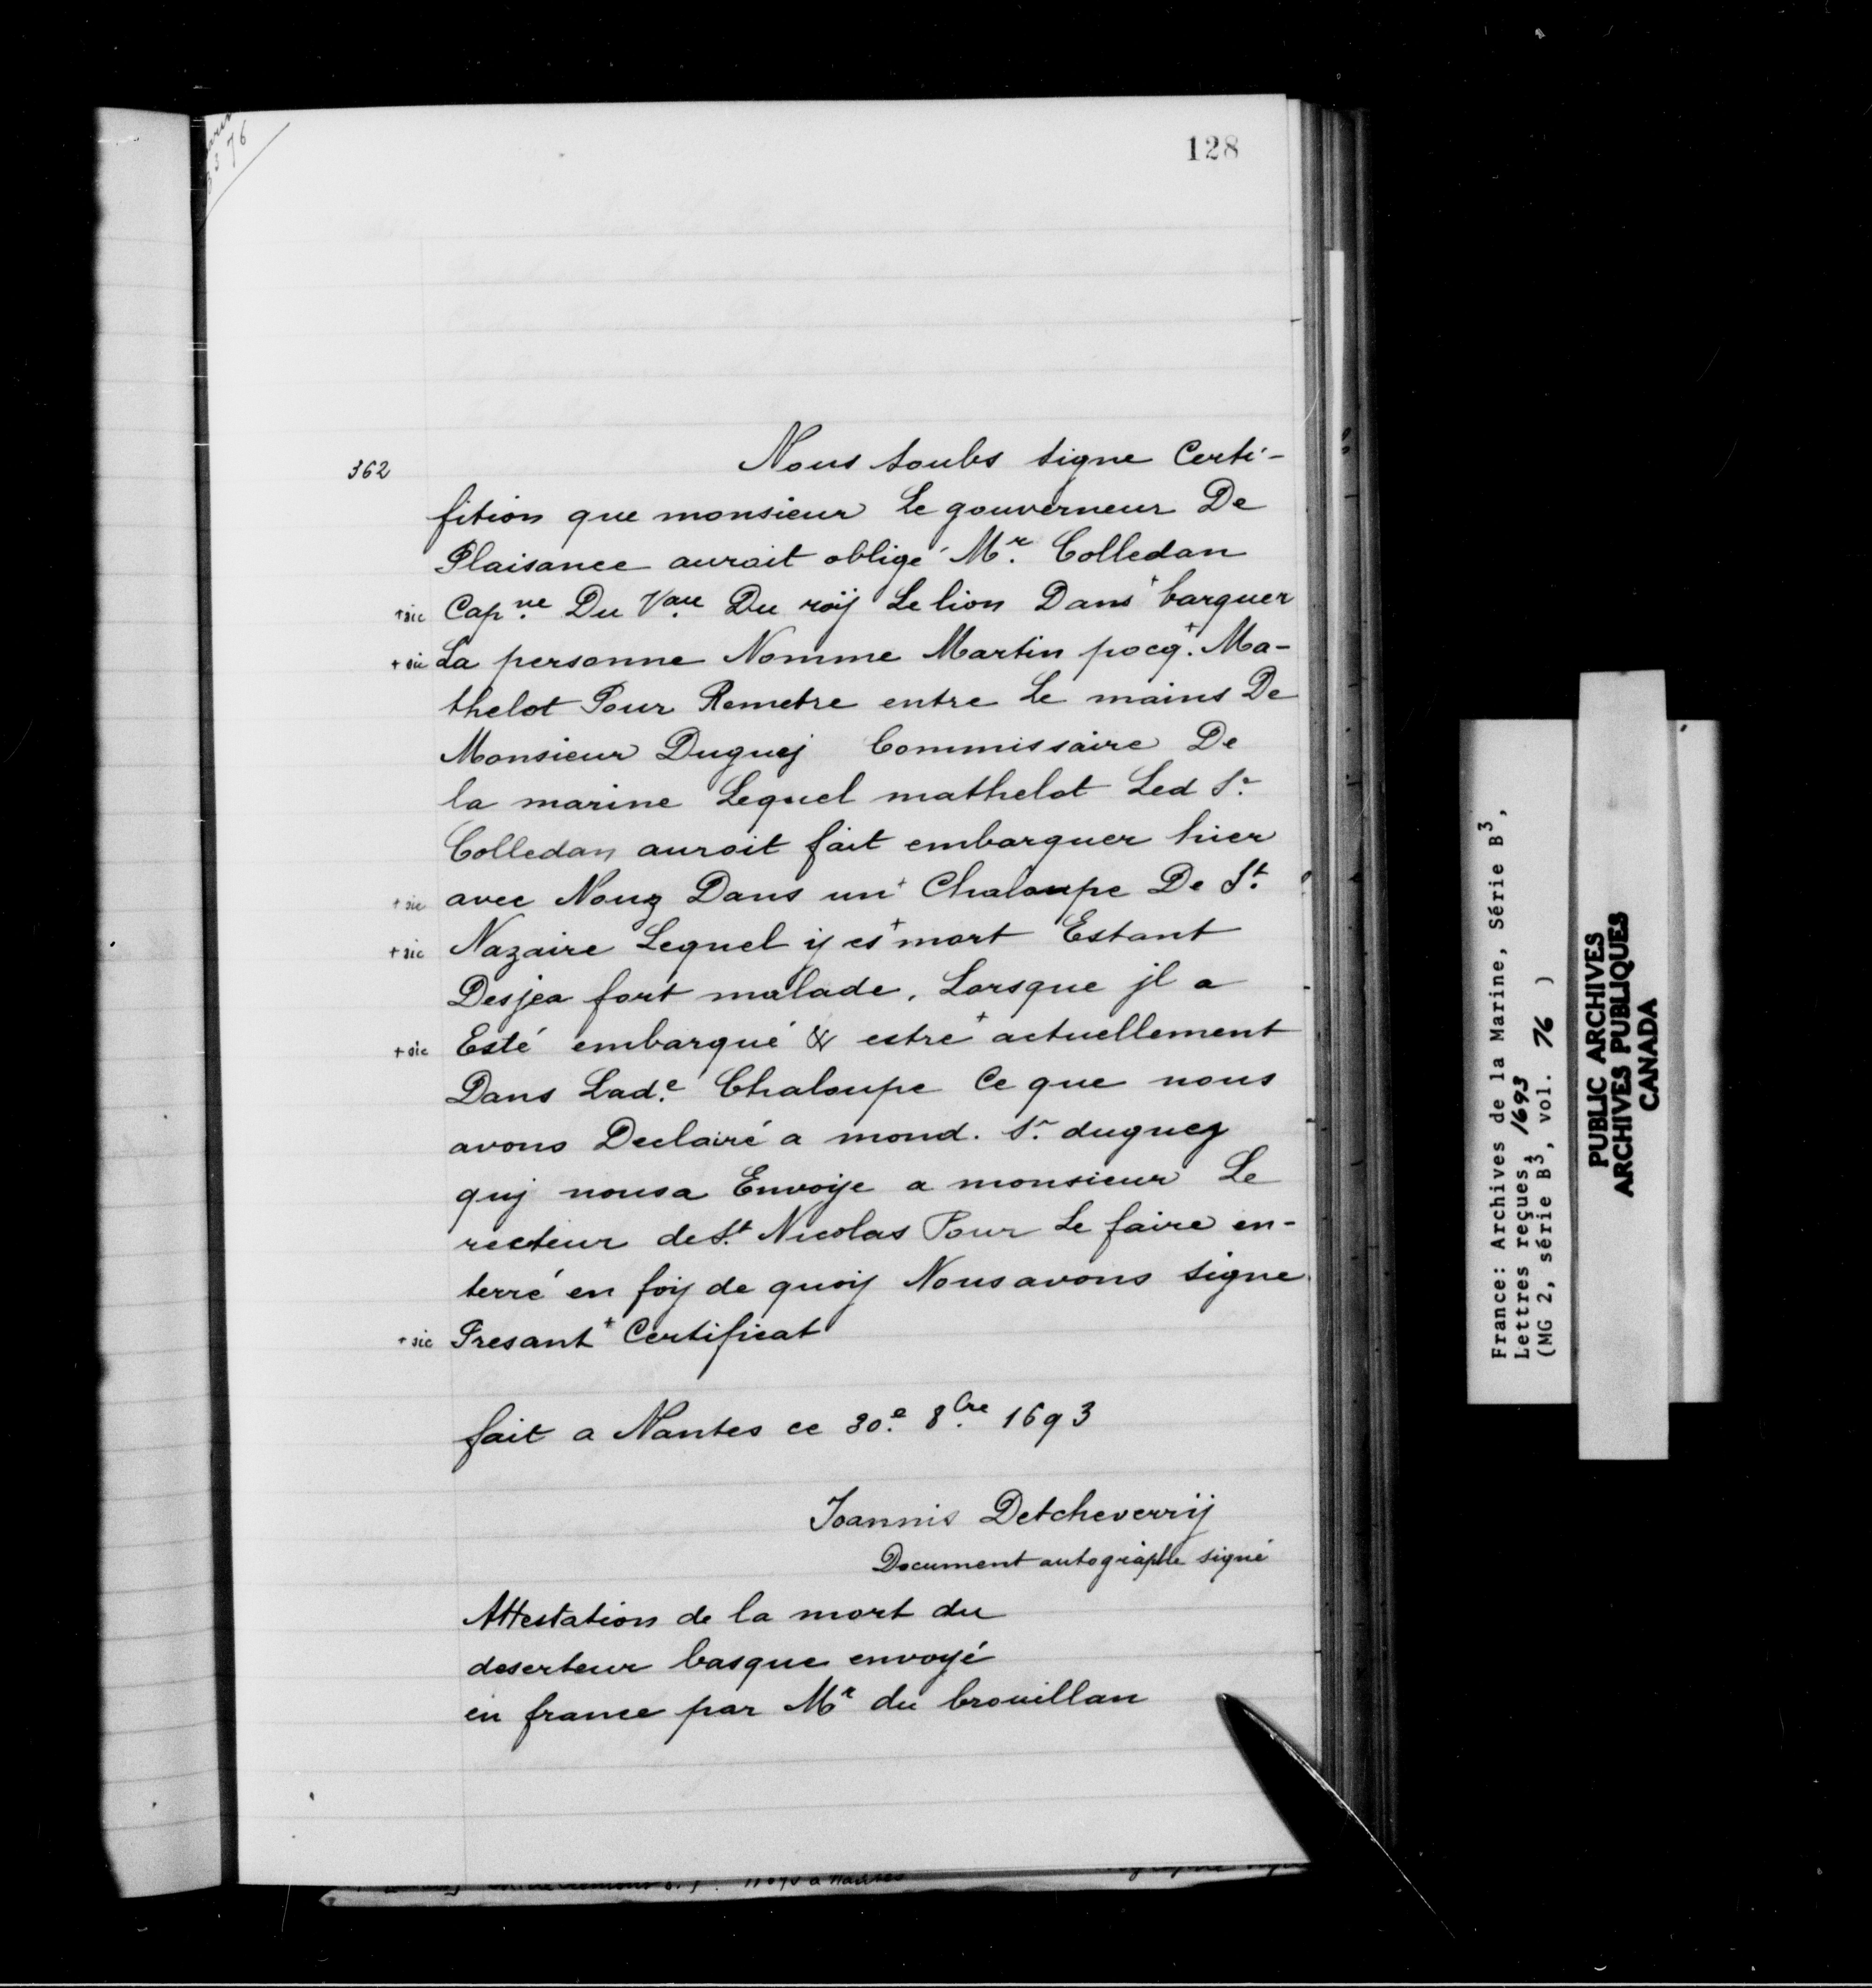 128
76
362
Nous soubs signe Certi-
fition que monsieur Le gouverneur De
Plaisance aurait obligé Mr. Colledan
+sic Cap.ne Du Vau. Du roÿ Le lion Dans+ barquer
+sic La personne Nomme Martin pocq+. Ma-
thelot Pour Remetre entre Le mains De
Monsieur Duguej Commissaire De
la marine Lequel mathelot Led Sr.
Colledan auroit fait embarquer hier
+sic avec Nouz Dans un+ Chaloupe De St.
+sic Nazaire Lequel ij es+ mort Estant
Desjea fort malade, Lorsque jl a
+sic Esté embarqué & estre+ actuellement
Dans Lad.e Chaloupe Ce que nous
avons Declairé a mond. Sr. duguez
quj nousa Envoije a monsieur Le
recteur de St. Nicolas Pour Le faire en-
terré en foij de quoij Nousavons signe
+sic Presant+ Certificat
fait a Nantes ce 30.e 8.bre 1693
Joannis Detcheverrij
Document autographe signé
Attestation de la mort du
deserteur basque envoyé
en france par Mr du brouillan
France: Archives de la Marine, Série B3,
Lettres reçues, 1693
(MG 2, série B3, vol. 76 )
PUBLIC ARCHIVES
ARCHIVES PUBLIQUES
CANADA